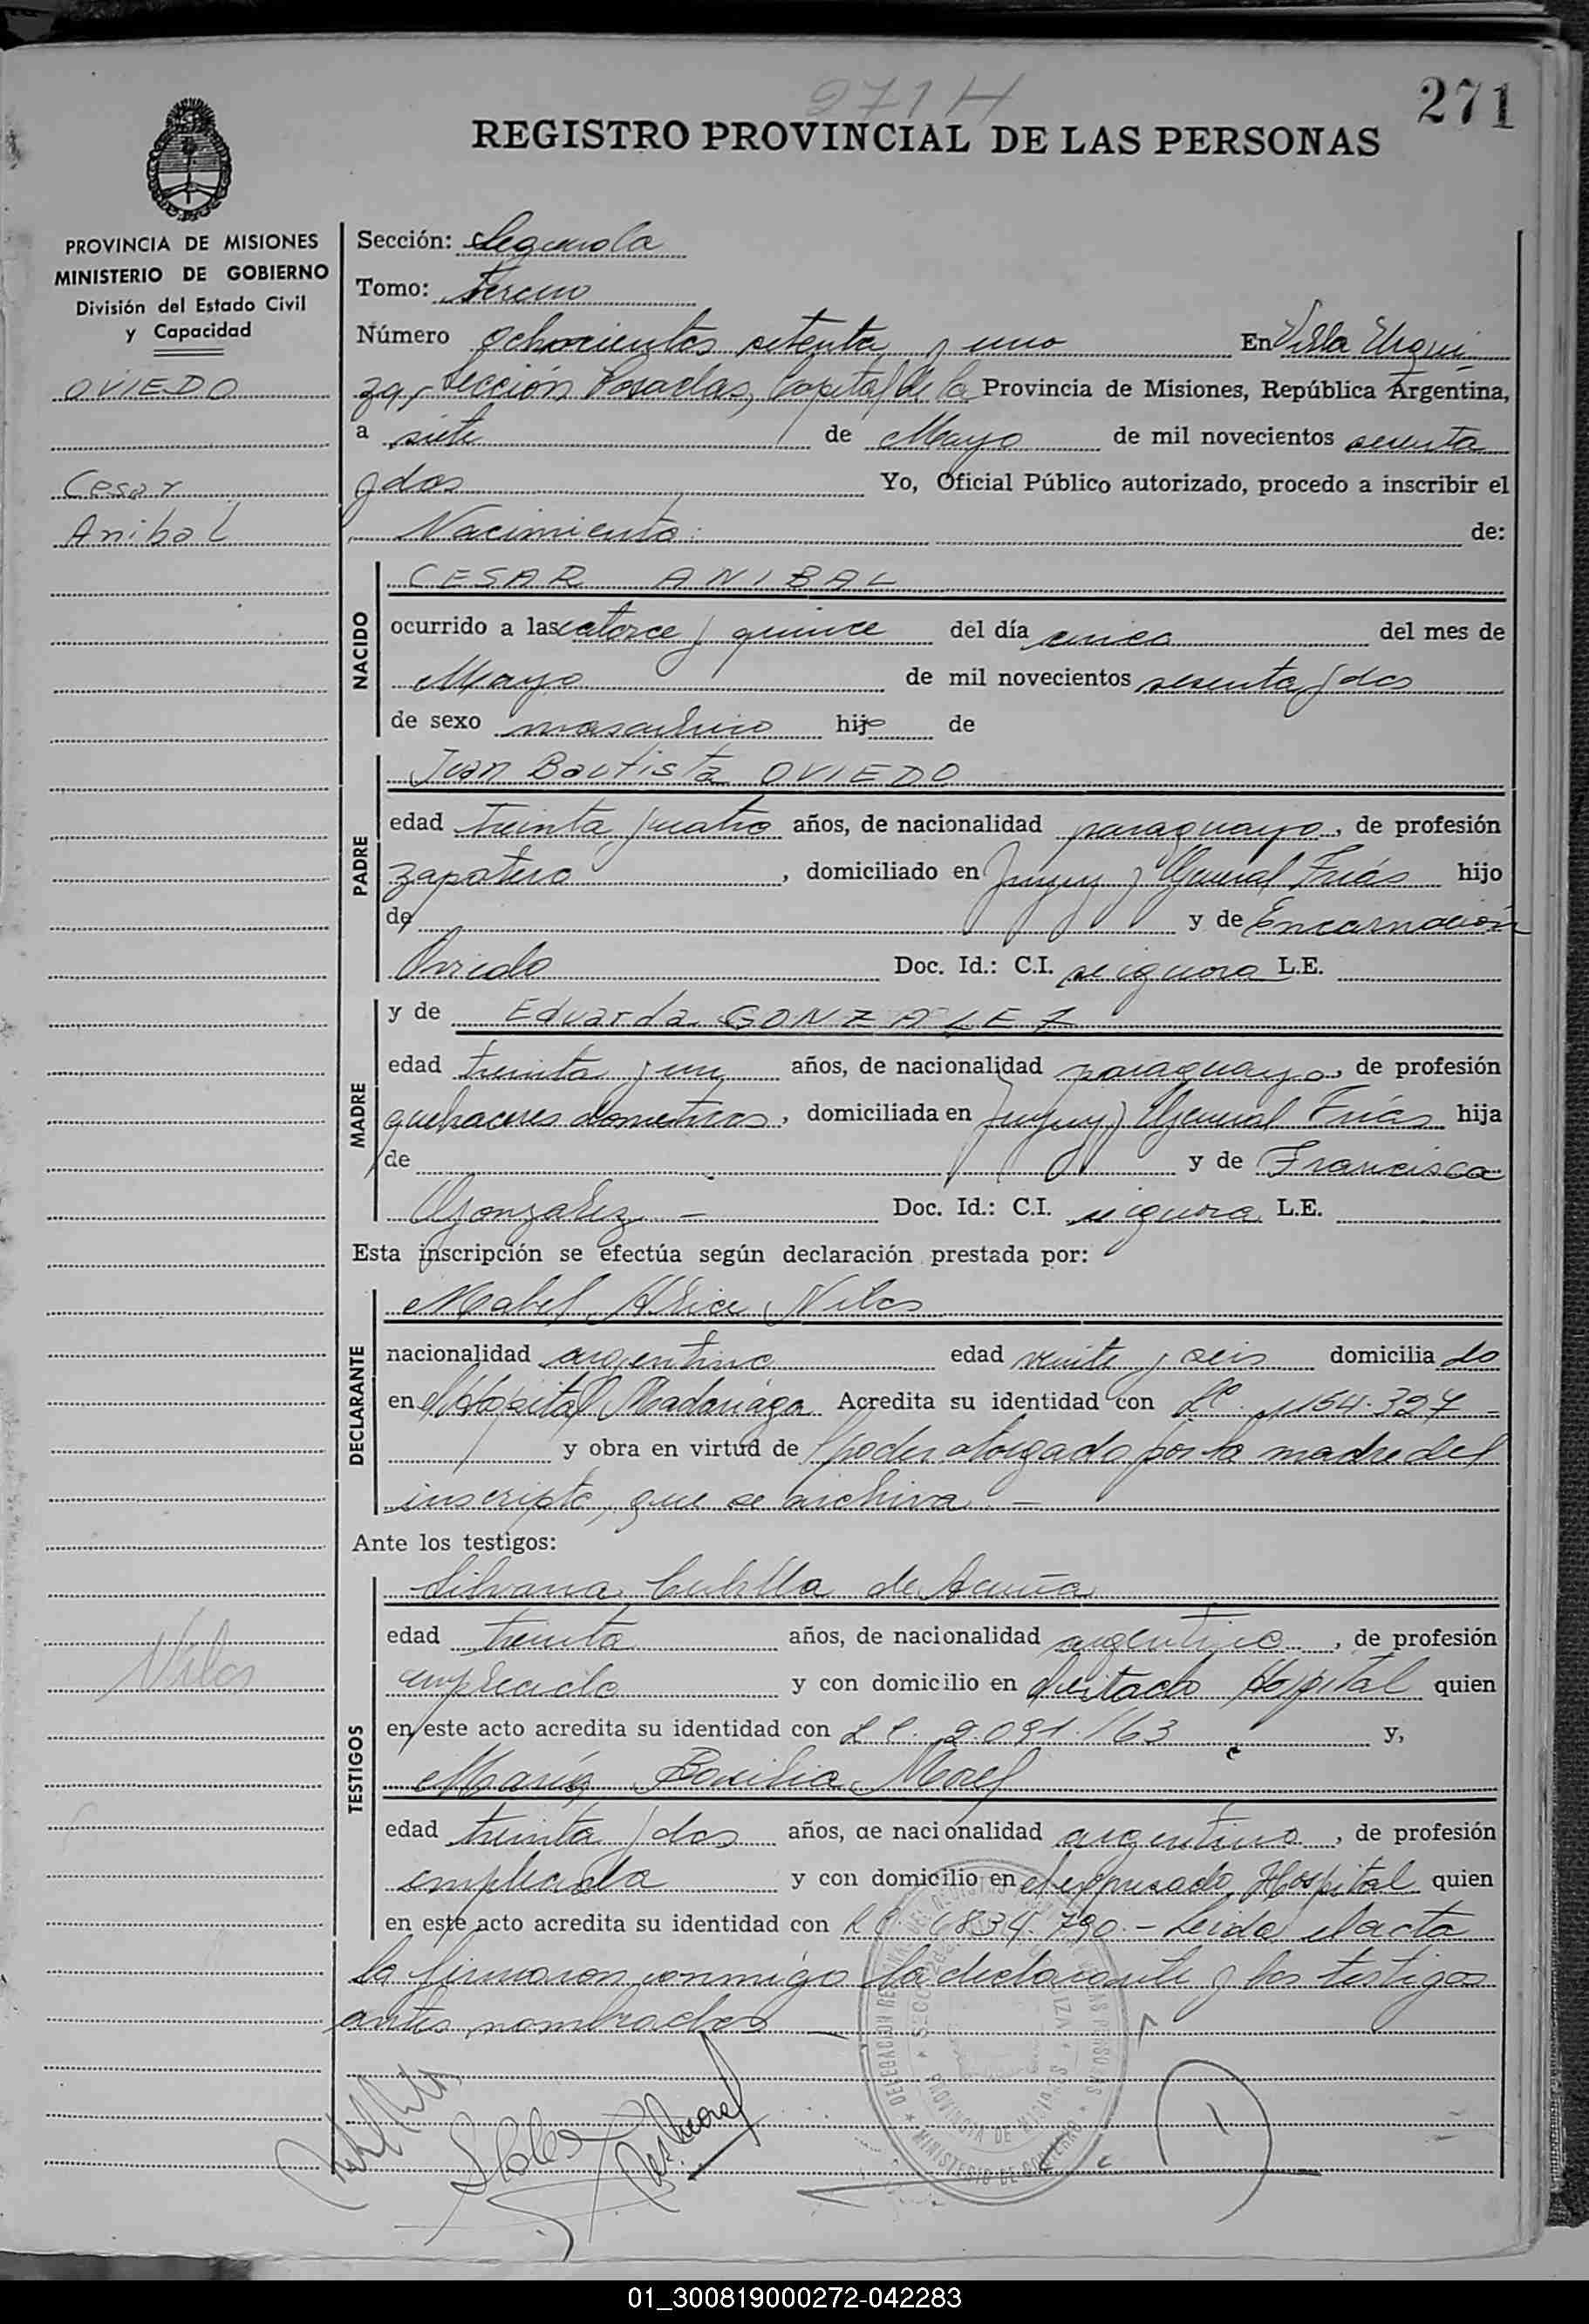 271 H
271
REGISTRO PROVINCIAL DE LAS PERSONAS
PROVINCIA DE MISIONES
MINISTERIO DE GOBIERNO
División del Estado Civil
y Capacidad
OVIEDO
Cesar
Anibal
Sección: Segunda
Tomo: Tercero
Número ochocientos setenta y uno En Villa Urqui
za, Sección Posadas, Capital de la Provincia de Misiones, República Argentina,
a siete de Mayo de mil novecientos sesenta
y dos Yo, Oficial Público autorizado, procedo a inscribir el
Nacimiento de:
NACIDO
CESAR ANIBAL
ocurrido a las catorce y quince del día cinco del mes de
Mayo de mil novecientos sesenta y dos
de sexo masculino hijo de
PADRE
Juan Bautista OVIEDO
edad treinta y cuatro años, de nacionalidad paraguayo, de profesión
zapatero, domiciliado en Jujuy y General Frías hijo
de y de Encarnación
Oviedo Doc. Id.: C.I. se ignora L.E.
MADRE
y de Eduarda GONZALEZ
edad treinta y un años, de nacionalidad paraguaya, de profesión
quehaceres domesticos, domiciliada en Jujuy y General Frías hija
de y de Francisca
Gonzalez - Doc. Id.: C.I. se ignora L.E.
Esta inscripción se efectúa según declaración prestada por:
DECLARANTE
Mabel Alice Niles
nacionalidad argentina edad veinte y seis domicilia do
en el Hospital Madariaga Acredita su identidad con Lc. 1154.327 -
y obra en virtud de poder otorgado por la madre del
inscripto, que se archiva. -
Ante los testigos:
TESTIGOS
Silvana Cubilla de Acuña
edad treinta años, de nacionalidad argentina, de profesión
empleada y con domicilio en el citado Hospital quien
en este acto acredita su identidad con L C. 9.091.163 y,
María Morel
edad treinta y dos años, de nacionalidad argentina, de profesión
empleada y con domicilio en el expresado Hospital quien
en este acto acredita su identidad con L C 6834.790. - Leida el acta
la firmaron conmigo la declarante y los testigos
antes nombrados
Niles
DELEGACION
PROVINCIA DE MISIONES
MINISTERIO DE GOBIERNO
01_300819000272-042283